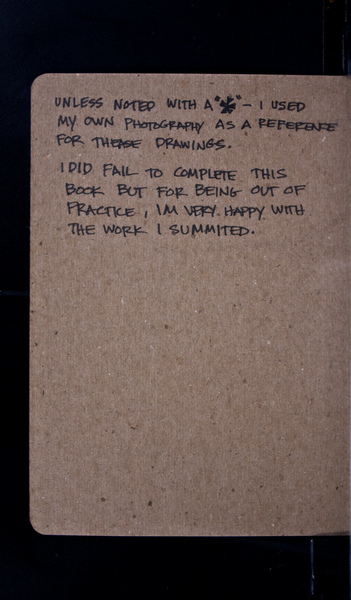 UNLESS NOTED WITH A "*" - I USED
MY OWN PHOTOGRAPHY AS A REFERENCE
FOR THEASE DRAWINGS.
I DID FAIL TO COMPLETE THIS
BOOK BUT FOR BEING OUT OF
PRACTICE, IM VERY HAPPY WITH
THE WORK I SUMMITED.